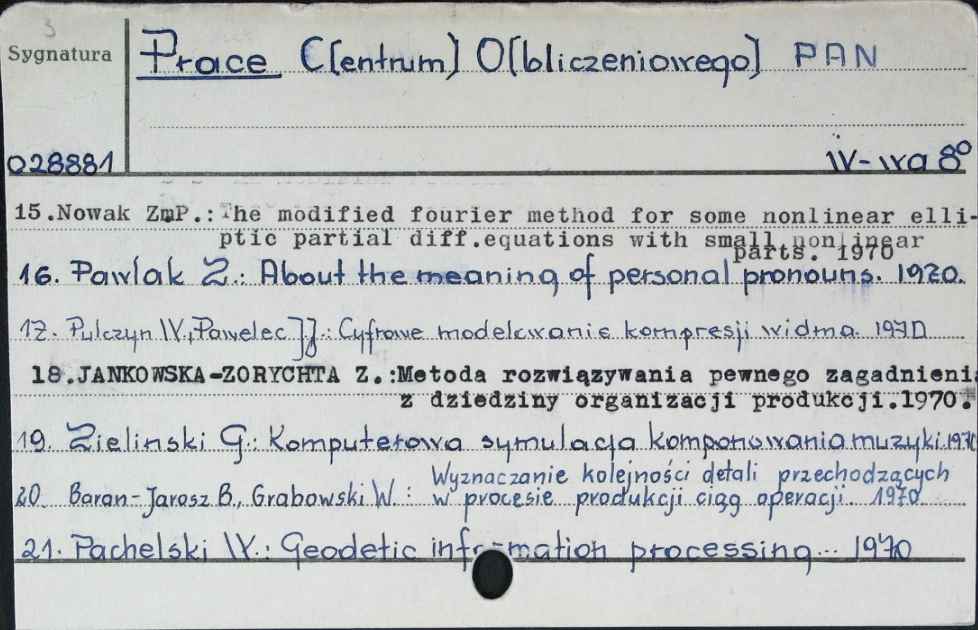 3
Sygnatura
Prace C[entrum] O[bliczeniowego] PAN
028881
W-wa 8°
15.Nowak ZmP.: The modified fourier method for some nonlinear elli-
ptic partial diff.equations with small nonlinear
parts. 1970
16. Pawlak Z.: About the meaning of personal pronouns. 1970.
17. Pulczyn W., Pawelec J.J.: Cyfrowe modelowanie kompresji widma. 1970
18.JANKOWSKA-ZORYCHTA Z.:Metoda rozwiązywania pewnego zagadnienia
z dziedziny organizacji produkcji.1970.
19. Zielinski G.: Komputerowa symulacja komponowania muzyki.1970
Wyznaczanie kolejności detali przechodzących
20. Baran-Jarosz B., Grabowski W.: w procesie produkcji ciąg operacji. 1970
21. Pachelski W.: Geodetic information processing... 1970